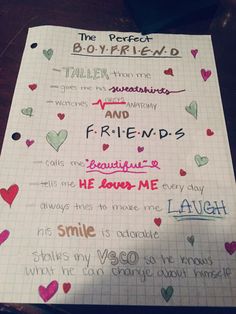 The Perfect
B-O-Y-F-R-I-E-N-D
- TALLER than me
- gives me his sweatshirts
- watches GREY'S ANATOMY
AND
F•R•I•E•N•D•S
- calls me "beautiful"
- tells me HE loves ME every day
- always tries to make me LAUGH
his smile is adorable
Stalks my VSCO so he knows
what he can change about himself